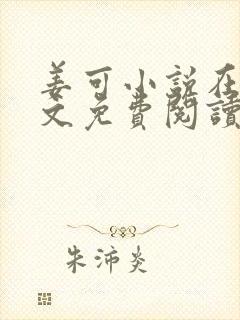 姜可小说在
文免費閱讀
朱沛炎